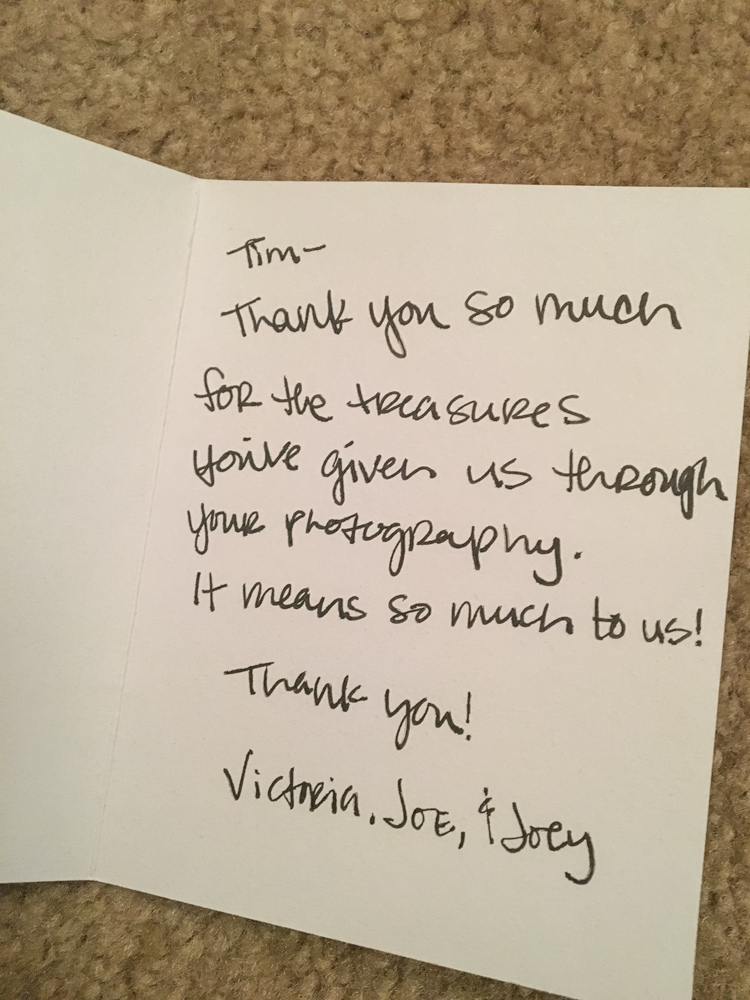 Tim-
Thank you so much
for the treasures
you've given us through
your photography.
It means so much to us!
Thank you!
Victoria, Joe, & Joey